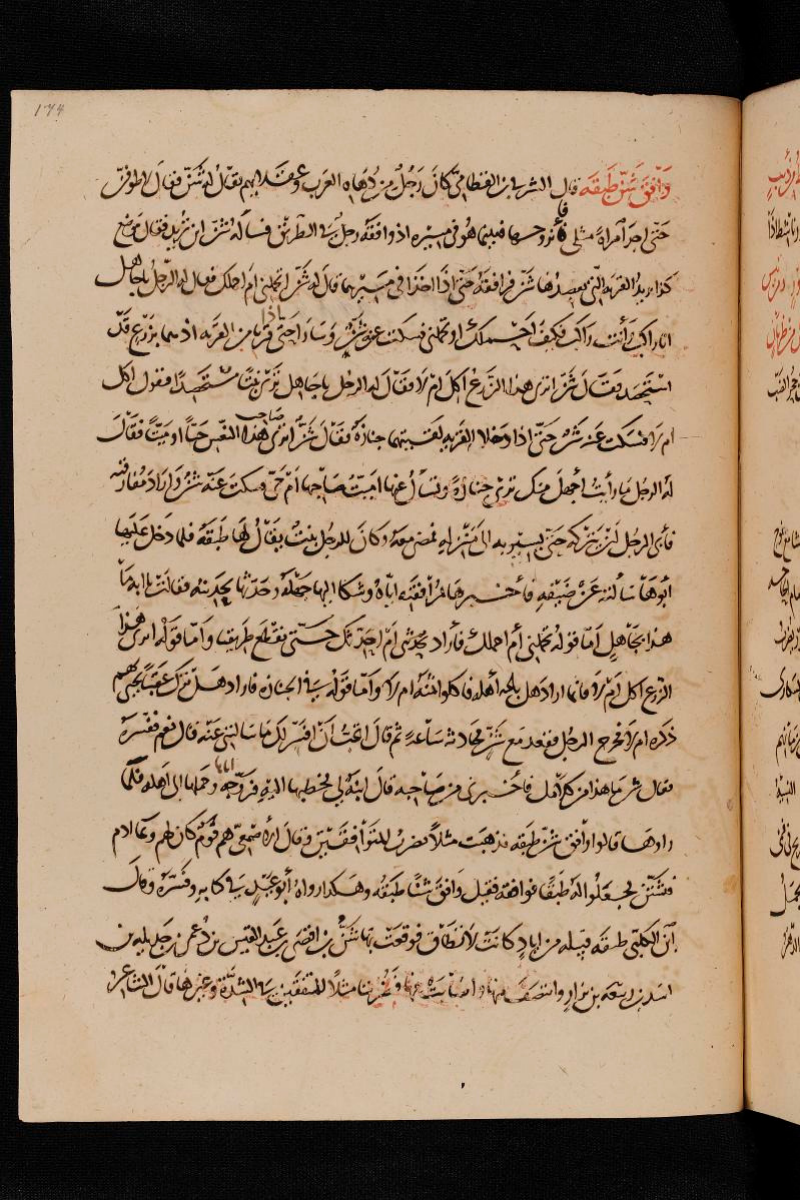 ١٧۴
وَافَقَ شَنٌّ طَبَقَةَ قال الشرقي بن القطامي كانَ رَجُلٌ من دُهَاة العرب وعقلائهم يقَالُ له شَنّ فقال لاطوفنّ
حَتّى اجد امرأةً مثلي فأتزوجها فبينما هُو في مسيره اذ وافقه رجل في الطريق فسأله شنّ اين تريد فقال موضع
كذا يريد القرية التي يقصدُها شنّ فرافقه حَتى اذا اخذا في مَسيرهما قال له شنّ اتحملني ام احملك فقال له الرّجلُ يا جاهل
انا راكب وَأنت راكب فكيفَ احمـلك او تحملني فسكت عنه شنّ وسَارا حتى اذا قربا من القرية اذ هما بزرع قد
استَحصد فقـال شنّ اترى هذا الزرعَ اُكلَ ام لا فقال له الرجل يا جَاهل ترى نبتًا مستحصدًا فتقول اكل
ام لا فسكت عنه شن حَتّى اذا دخلا القرية لقيتهما جنازةٌ فقال شنّ اترى صاحب هذا النعش حيّا او ميّتًا فقالَ
له الرجل ما رأيتُ اجهلَ منك ترى جنازةً وتسألُ عنها اميّتٌ صاحبها ام حَيّ فسكت عنه شنّ وارَادَ مفارقته
فأبى الرجل ان يتركه حَتى يسير به الى منزله فمضى معه وكانَ للرجل بنتٌ يقالُ لها طبقَة فلما دَخل عليها
أبوهَا سَألته عن ضَيفه فأخبرهَا بمرافقته ايّاهُ وشكا اليها جَهله وحَدّثها بحديثه فقالت يا ابه مَا
هذا بجاهلٍ امّا قولهُ تحملني أم احملك فأراد تحدثني ام احدثك حتّى نقطع طريقنا وَأمّا قوله اترى هذا
الزرع اكل ام لا فانما اراد هل باعه أهله فاكلوا ثمنه ام لا وَامّا قوله في الجنازة فاراد هـل ترك عقبًا يحيى بهم
ذكره ام لا فخرج الرجل فقعد مَع شَنّ يحادثه سَاعةً ثم قالَ اتحبُّ اَن افسّر لك مَا سَالتني عنه قال نعم ففسّره
فقال شن ما هذا من كلامك فاخبرني من صَاحبه قالَ ابنةٌ لي فخطبها اليه فزوّجه اياها وحملها الى اهله فلمّا
راوهَا قالوا وافق شنّ طبقه فذهبت مثلاً يضربُ للمتوافقين وقالَ الاصمعيّ هم قومٌ كان لهم وعَاء ادم
فتشنّن فجعلوا له طبَقًا فوافقه فقيل وَافقَ شنّا طبَقَه وهكذا رواهُ أبو عُبَيْدٍ في كتابه وفسّرهُ وقالَ
ابن الكلبي طبقه قبيله من اِيادٍ كانت لا تُطاق فوقعَت بها شنُّ بن افصَى بن عَبد القيس بن دُعمى بن جَديله بن
اسد بن ربيعه بن نزارٍ وانتصفَت منها واصَابت منها فضُربتا مثلاً للمتفقين في الشدّة وغيرها قالَ الشاعر